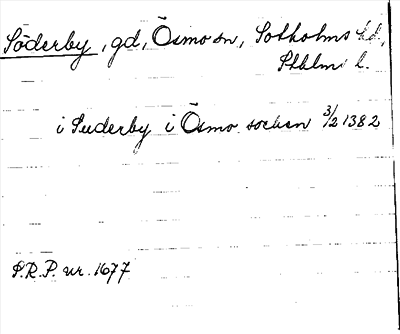 Söderby, gd, Ösmo sn, Sotholms hd,
Sthlms l.
i Suderby i Ösmo socken 3/2 1382
S.R.P. nr. 1677